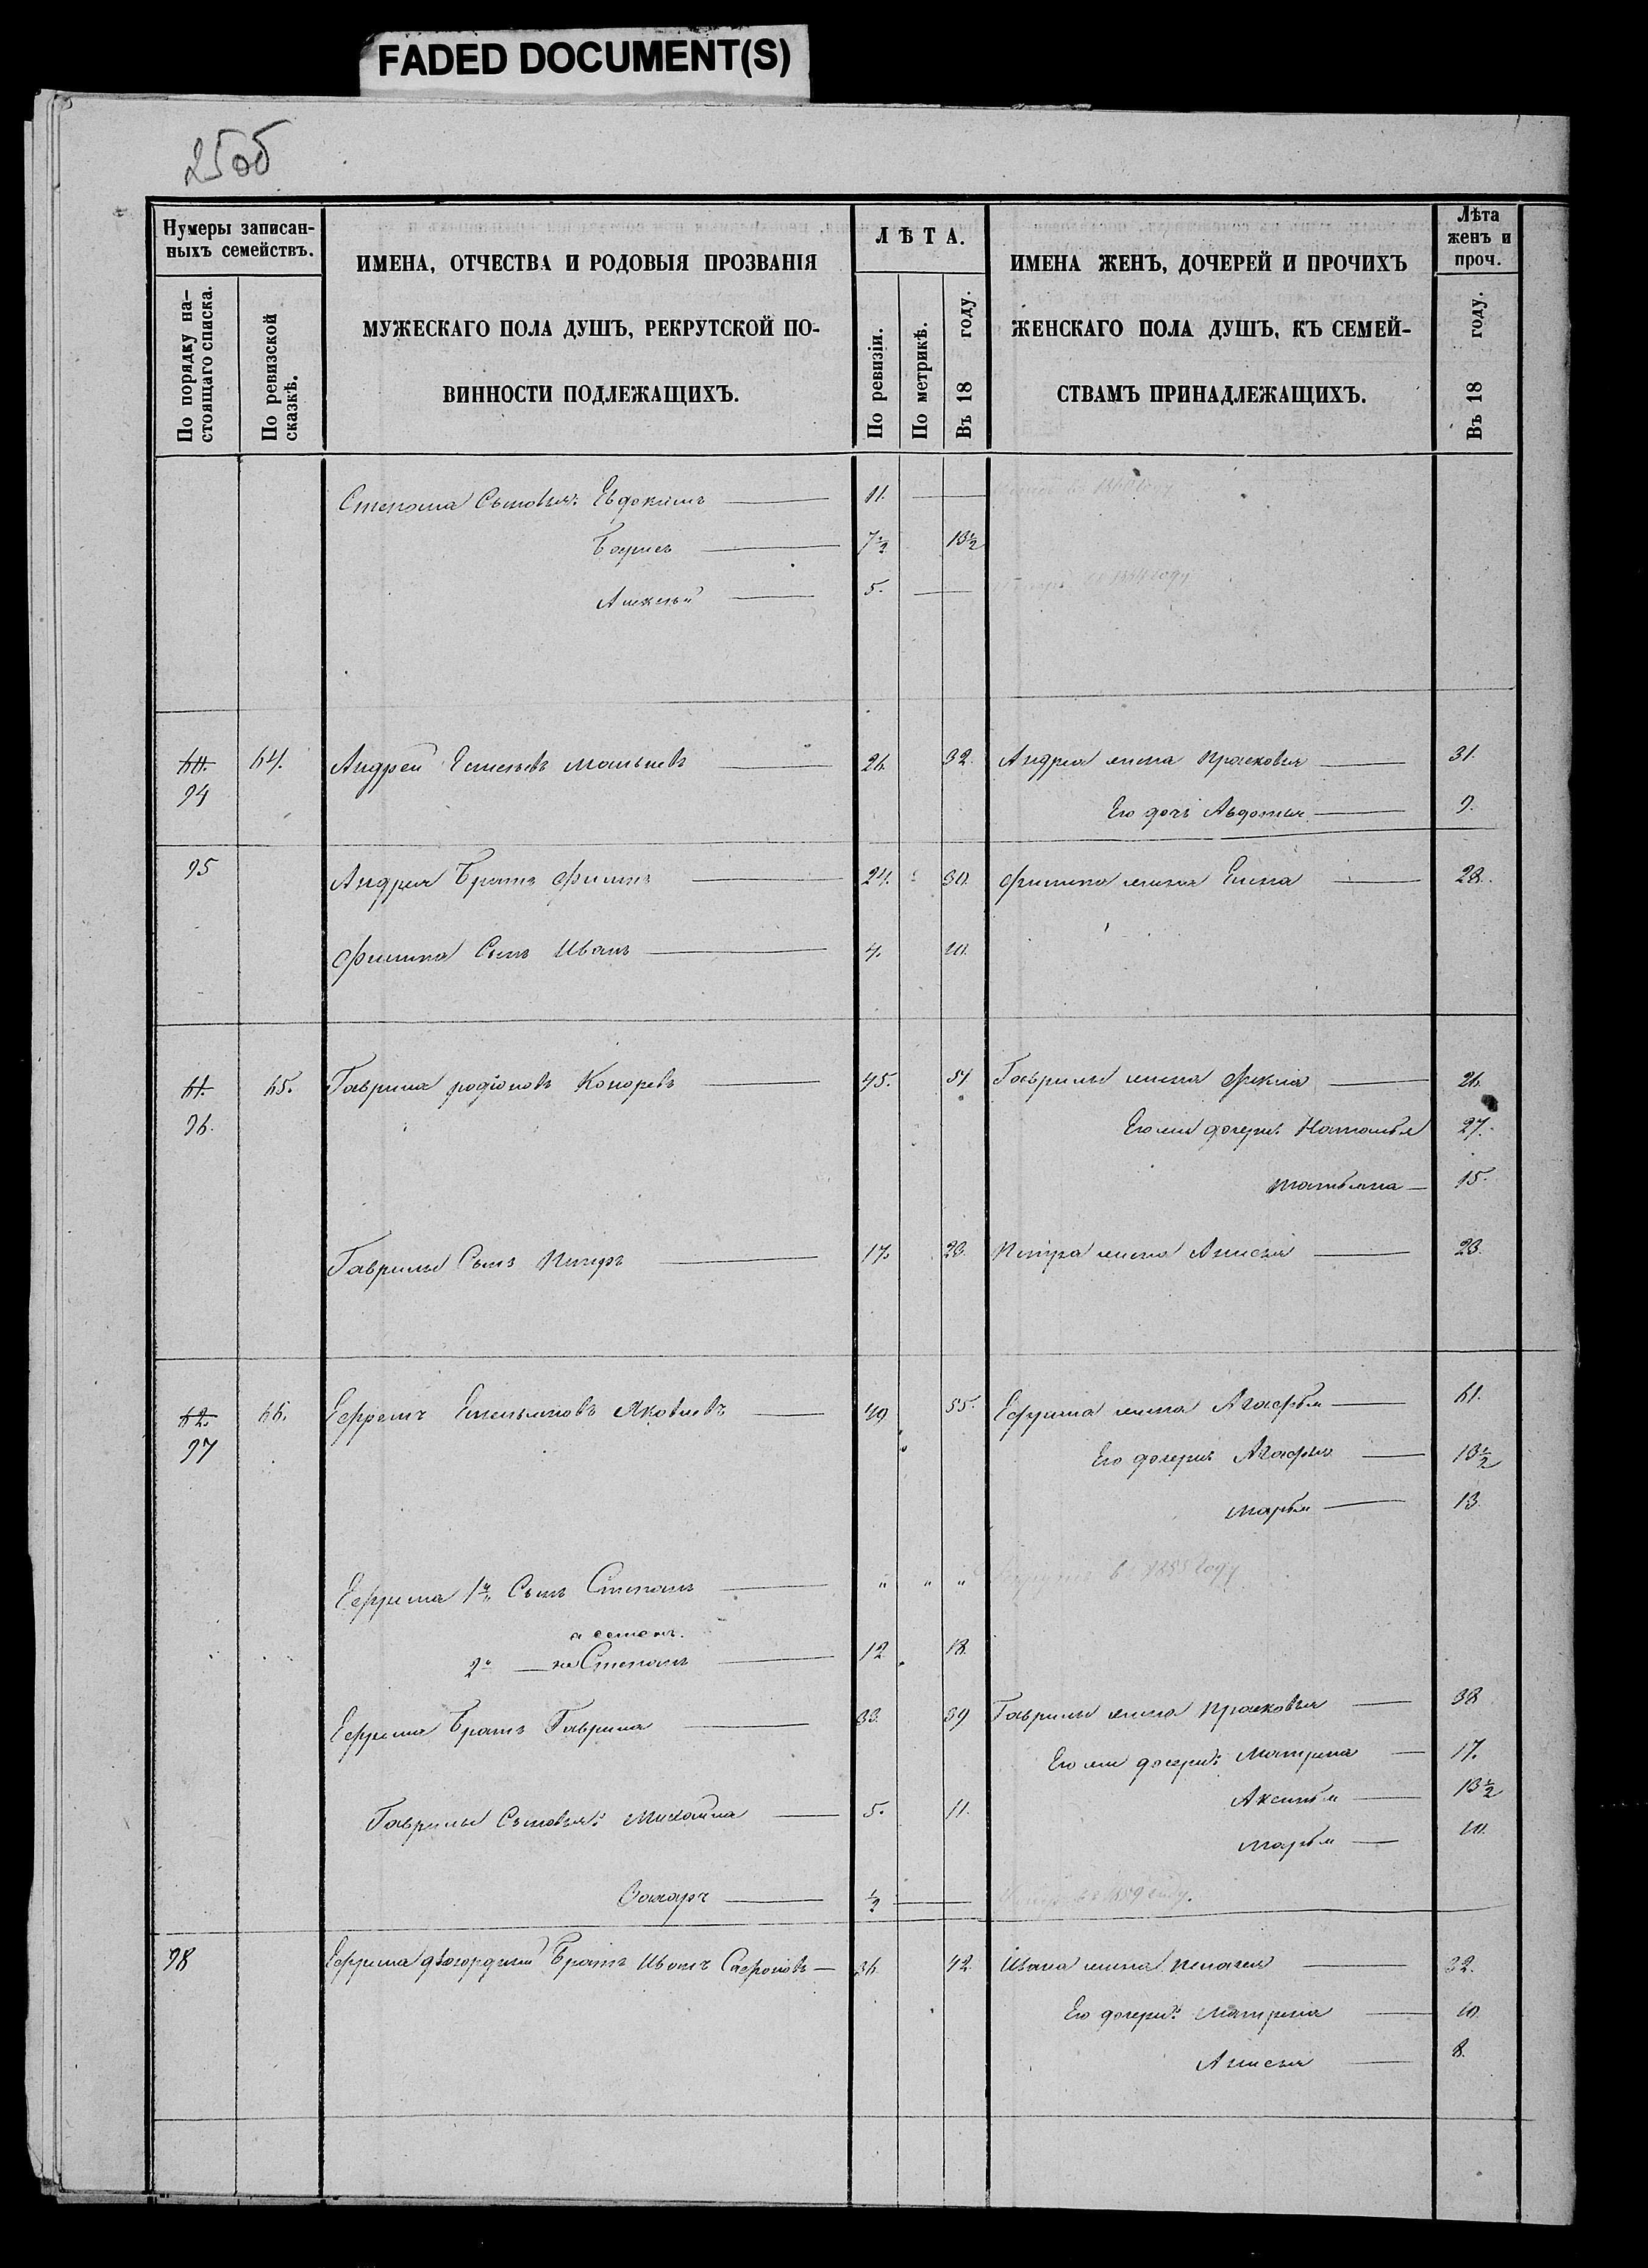 FADED DOCUMENT(S)
25об
Нумеры записан-
ныхъ семействъ.
По порядку на-
стоящаго списка.
По ревизской
сказкѣ.
ИМЕНА, ОТЧЕСТВА И РОДОВЫЯ ПРОЗВАНІЯ
МУЖЕСКАГО ПОЛА ДУШЪ, РЕКРУТСКОЙ ПО-
ВИННОСТИ ПОДЛЕЖАЩИХЪ.
ЛѢТА.
По ревизіи.
По метрикѣ.
Въ 18 году.
ИМЕНА ЖЕНЪ, ДОЧЕРЕЙ И ПРОЧИХЪ
ЖЕНСКАГО ПОЛА ДУШЪ, КЪ СЕМЕЙ-
СТВАМЪ ПРИНАДЛЕЖАЩИХЪ.
Лѣта
женъ и
проч.
Въ 18 году.
Степана Сыновья: Евдокимъ — 11. — въ 1860 году
Борисъ — 7½ 13½
Алексѣй — 5. — году
60. 64. Андрей — 26. 32. Андрея жена Прасковья — 31.
94 Его дочь Авдотья — 9.
95 Андрея Братъ Филипъ — 24. 30. Филипа жена Елена — 28.
Филипа Сынъ Иванъ — 4. 10.
61. 65. Гаврила Родіоновъ — 45. 51 Гаврилы жена Фекла — 26.
96. Его же дочери: Наталья 27.
Татьяна — 15.
Гаврилы Сынъ Петръ — 17. 23. Петра жена Анисья — 23.
62. 66. Ефремъ Емельяновъ Яковлевъ — 49 55. Ефрема жена Агафья — 61.
97 Его дочери: Агафья — 13½
Марья — 13.
Ефрема 1й Сынъ Степанъ — " " " въ 1855 году
а Семенъ.
2й — не Степанъ — 12 18.
Ефрема Братъ Гаврила — 33. 39 Гаврилы жена Прасковья — 38
Его же дочери: Матрена — 17.
Гаврилы Сыновья: Михайла — 5. 11. Аксинья — 13½
Марья — 10.
Захаръ — ½ — въ 1859 году.
98 Ефрема двоюродный Братъ Иванъ Сафроновъ — 36. 42. Ивана жена Пелагея — 32.
Его дочери: Матрена — 10.
Анисья — 8.